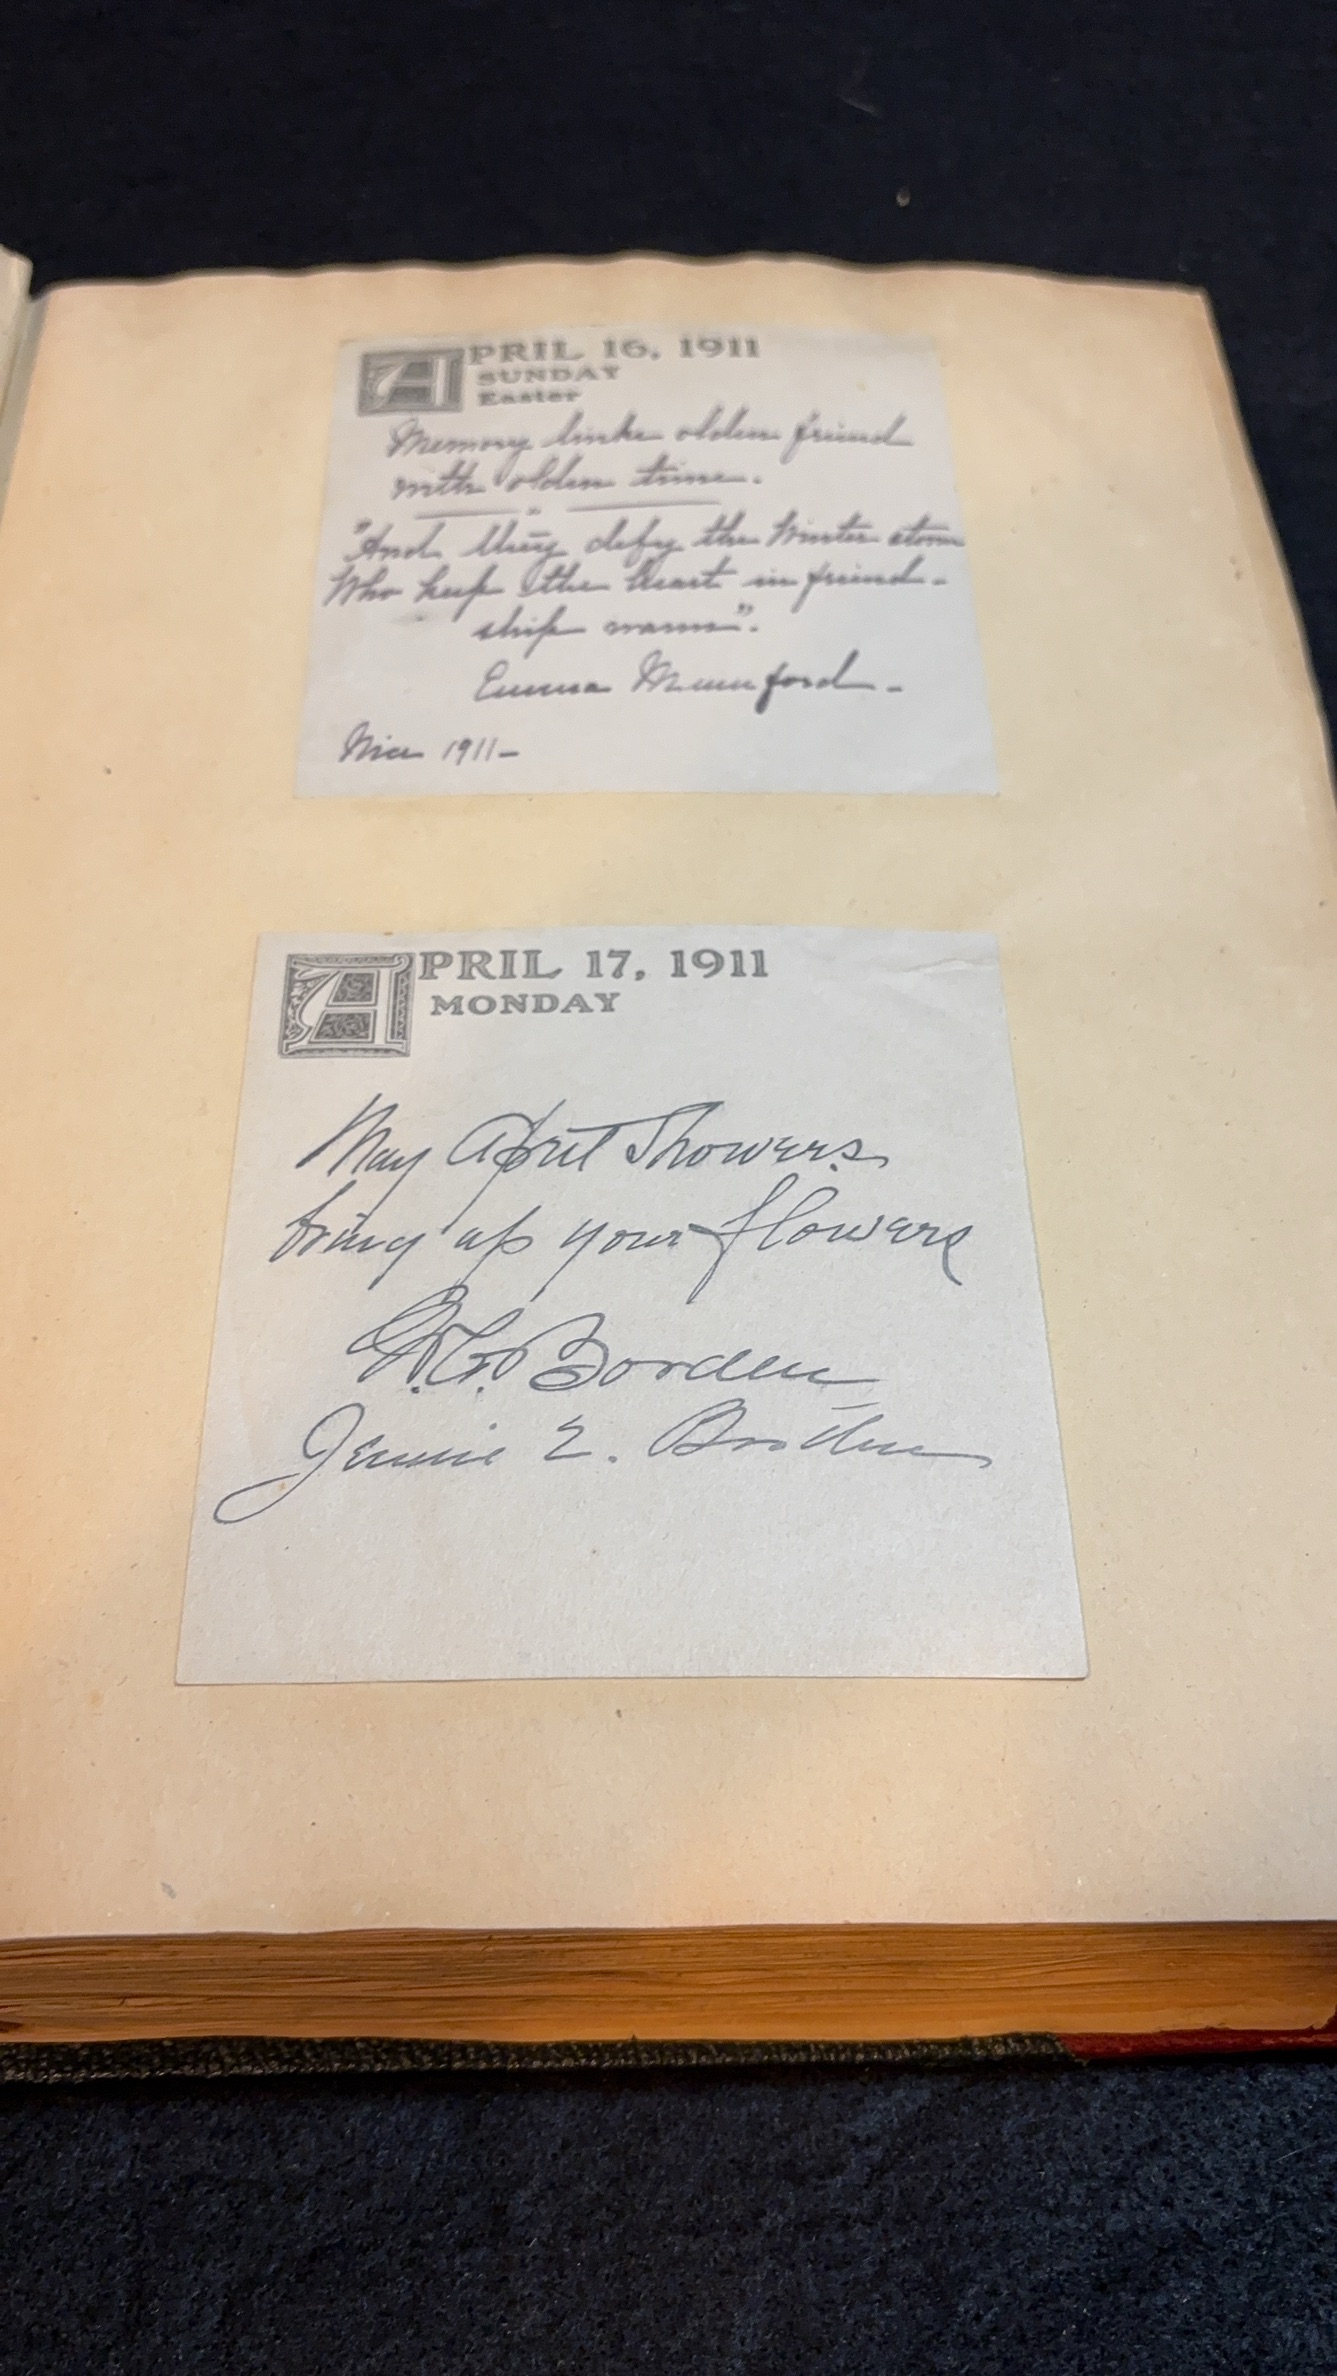 APRIL 16, 1911
SUNDAY
Easter
Memory links olden friend
with olden time.
"And they defy the Winter storm
Who keep the heart in friend-
ship warm".
Emma Mumford -
Nice 1911 -
APRIL 17, 1911
MONDAY
May April Showers
bring up your flowers
Borden
Jennie E.